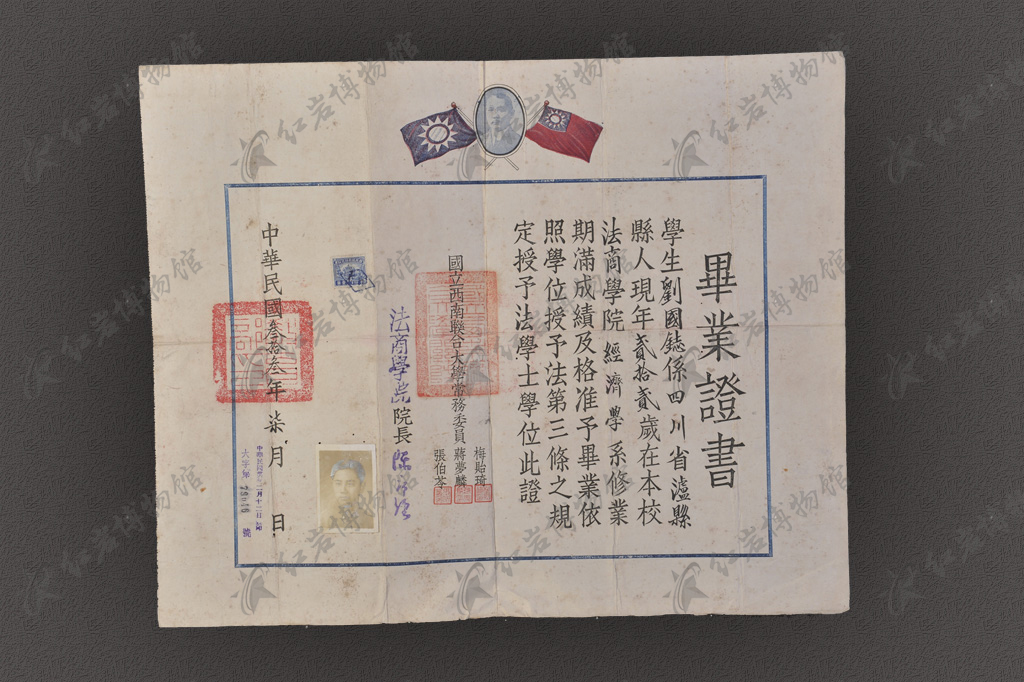 畢業證書
學生劉國鋕係四川省瀘縣
縣人現年貳拾貳歲在本校
法商學院經濟學系修業
期滿成績及格准予畢業依
照學位授予法第三條之規
定授予法學士學位此證
國立西南聯合大學常務委員
梅貽琦
蔣夢麟
張伯苓
法商學院院長陳
中華民國叁拾叁年柒月 日
大字第 號
红岩博物馆